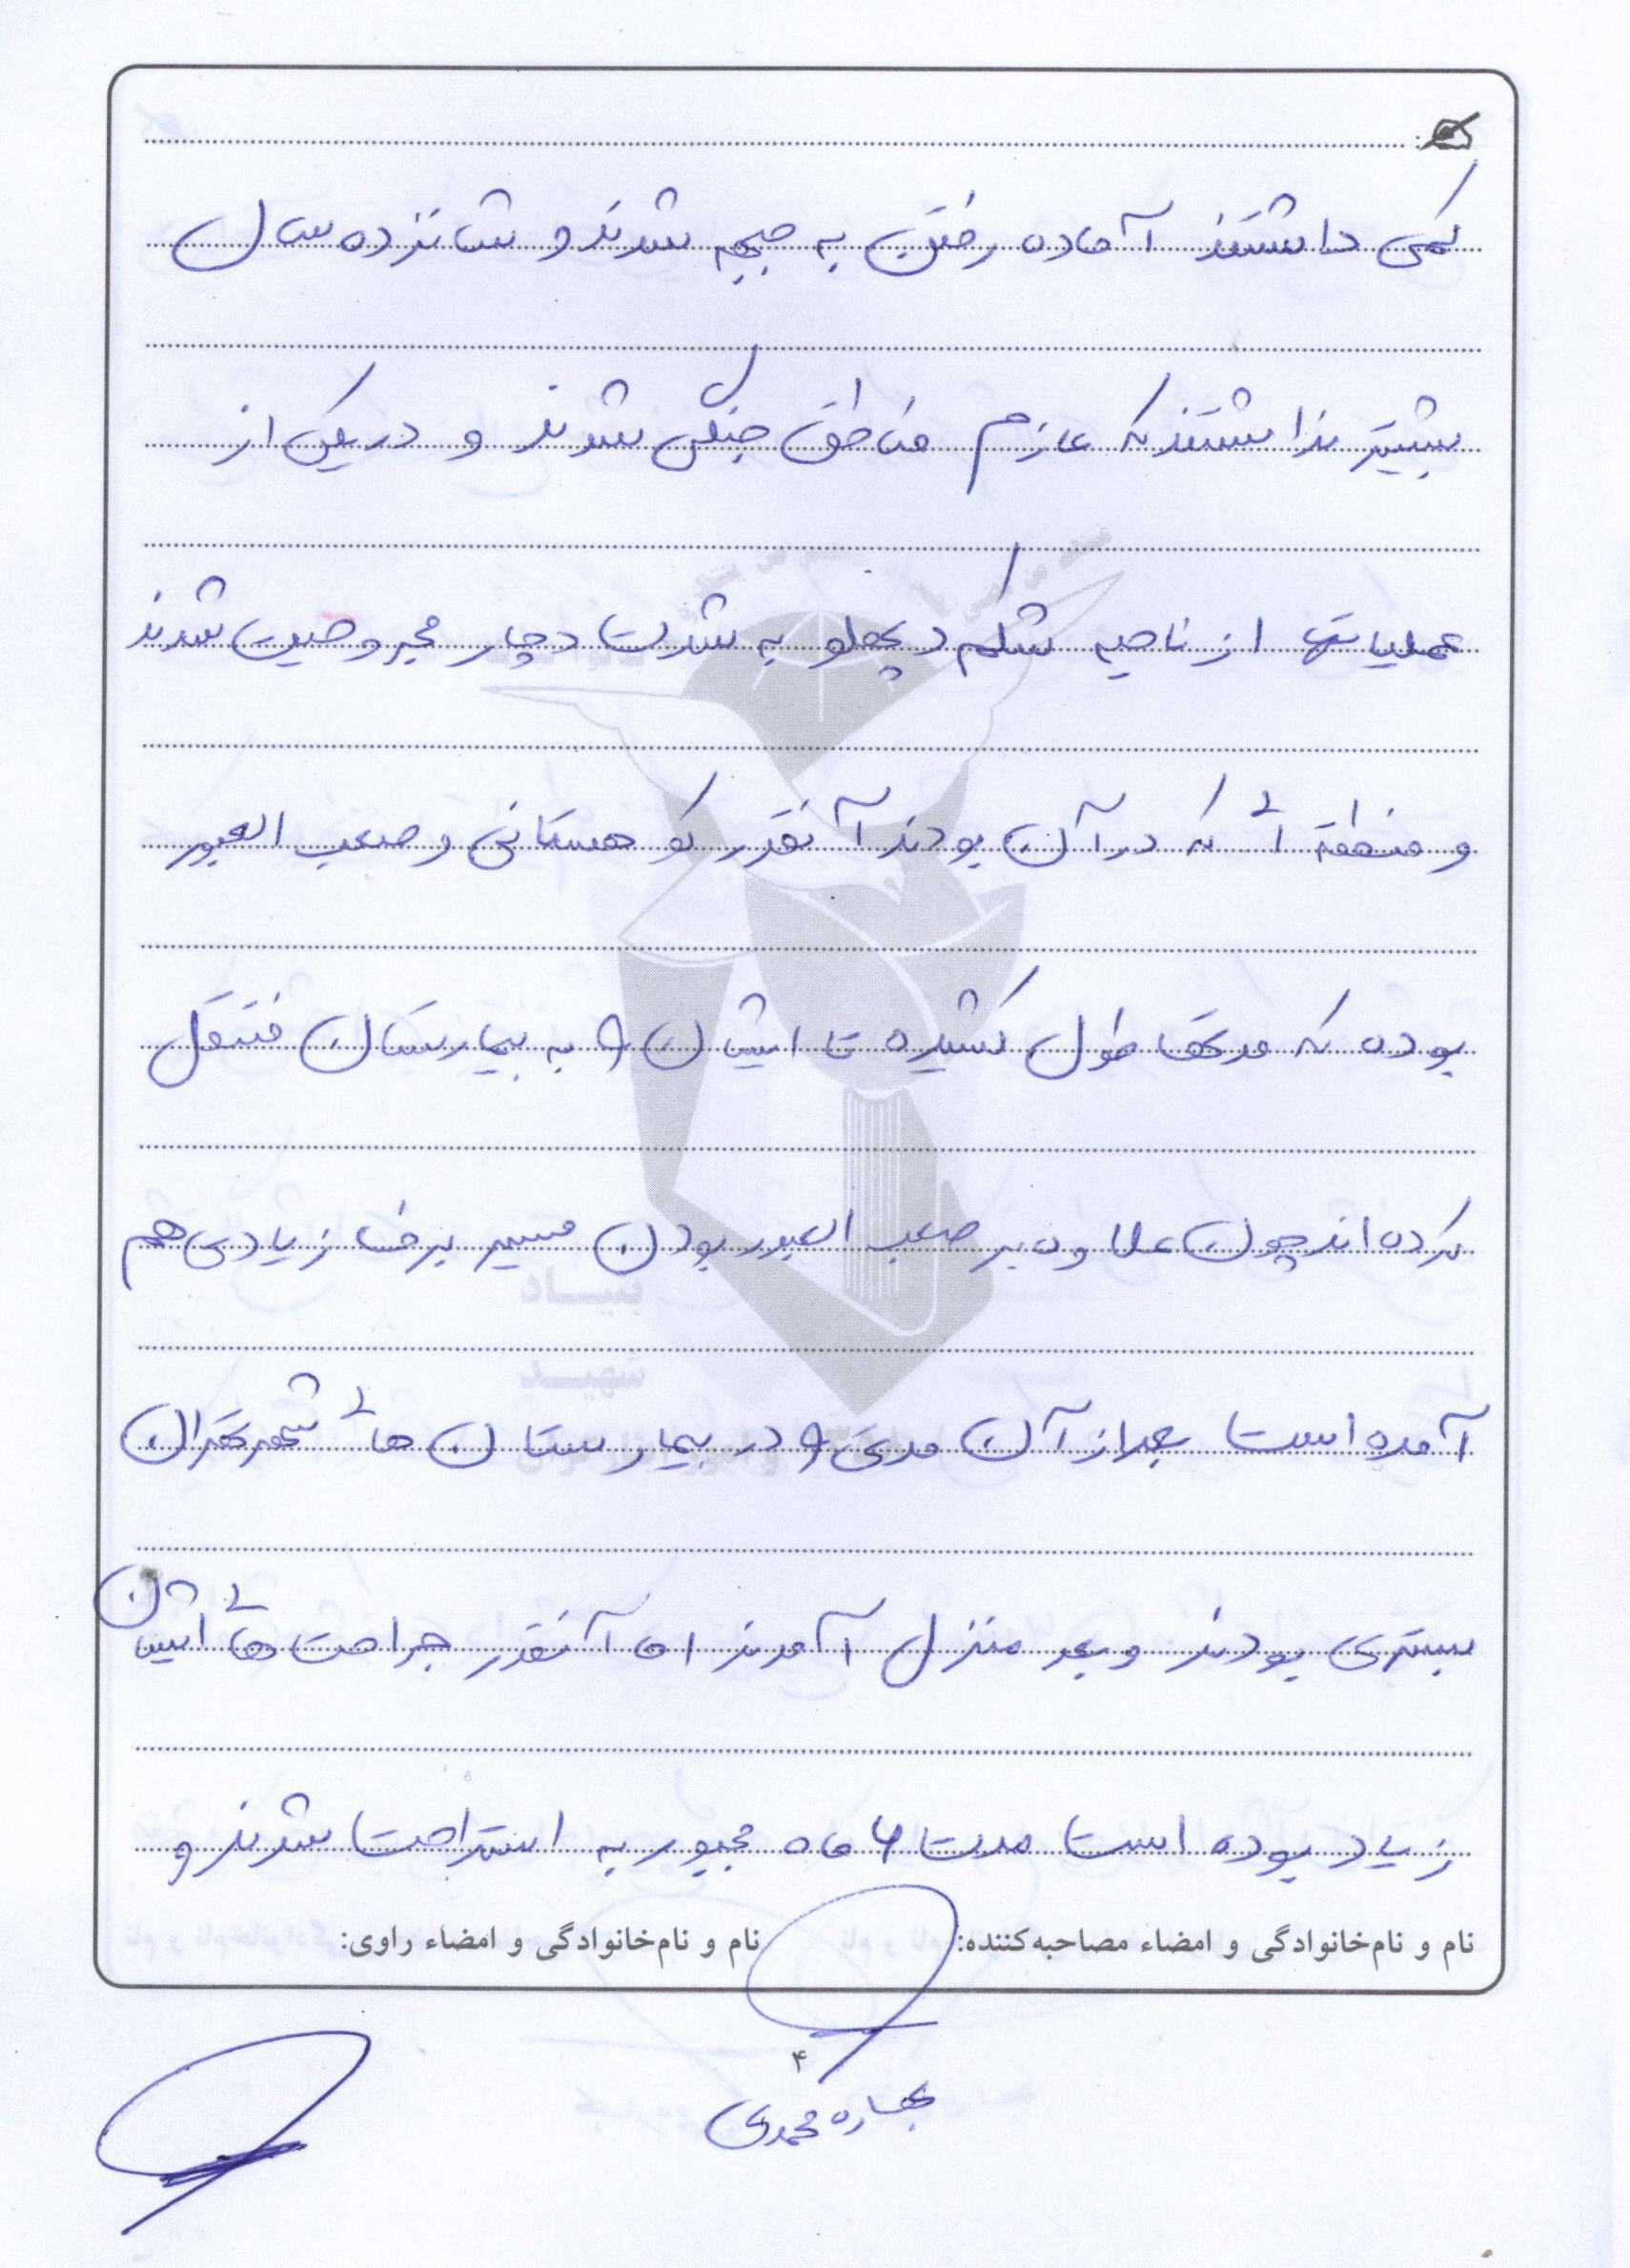 کمی داشتند آماده رفتن به جبهه شدند و شانزده سال
بیشتر نداشتند که عازم مناطق جنگی شدند و در یکی از
عملیاتها از ناحیه شکم و پهلو به شدت دچار مجروحیت شدند
و منطقه ای که در آن بودند آنقدر کوهستانی و صعب العبور
بوده که مدتها طول کشیده تا ایشان را به بیمارستان منتقل
کرده اند چون علاوه بر صعب العبور بودن مسیر برف زیادی هم
آمده است بعد از آن مدتی را در بیمارستان های شهر تهران
بستری بودند و بعد منزل آمدند اما آنقدر جراحت های ایشان
زیاد بوده است مدت ۶ ماه مجبور به استراحت شدند و
نام و نام‌خانوادگی و امضاء مصاحبه‌کننده: نام و نام‌خانوادگی و امضاء راوی:
۴
بهاره محمدی